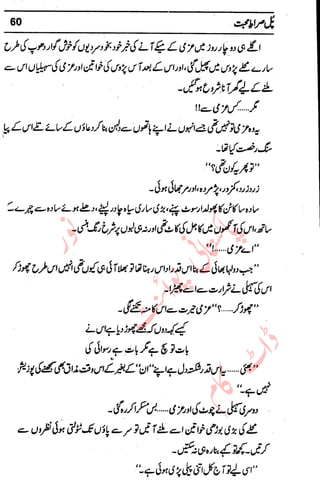 60 پل صراط محبت
اگلے ہی دو چار روز میں عزمی کے میکے آنے کی خبر خود بخود سردیوں کو خوش گوار دھوپ کی طرح
سارے محلے پڑوس میں پھیل گئی، اور اس کے بعد آس پڑوس کی خواتین اور عزمی کی سہیلیاں اس سے
ملنے کے لیے گھر آنا شروع ہو گئیں۔
مگر......کس عزمی سے!!
یہ وہ عزمی تو نہیں تھی جسے انہوں نے اپنے ہاتھوں سے دلہن بنا کر دعاؤں کے سائے تلے اس کے پیا
سنگ رخصت کیا تھا۔
’’تو پھر یہ کون تھی؟‘‘
زرد رو، کمزور، پژمردہ، اور مرجھائی ہوئی۔
سادہ سا کاٹن کا پھولدار سوٹ پہنے، بڑی ساری سیاہ چادر لپیٹے، دھلے ہوئے سادہ سے چہرے کے
ساتھ، اس کی آنکھوں میں کاجل کی کاٹ تھی اور نہ ہی لبوں پر شرخ رنگ ہنسی۔
’’اے عزمی......!‘‘
’’جب دولہا بھائی کے بنا اس قدر اداس رہنا تھا تو بھلا آئی ہی کیوں تھی انہیں اس طرح چھوڑ کر
اس کی سہیلی نے شرارت سے اسے چھیڑا۔
’’چھوڑ کر......؟‘‘ عزمی حیرت سے اس کا منہ تکنے لگی۔
کیسے کہہ دوں کہ مجھے چھوڑ دیا ہے اس نے
بات تو سچ ہے مگر بات ہے رسوائی کی
’’بھئی......یہ اس قدر شکستہ دل ہے اپنے ’’ان‘‘ کے بغیر کے اس وقت مذاق بھی سمجھنے کی پوزیشن
نہیں ہے۔‘‘
دوسری سہیلی نے چوٹ کی اور عزمی......بس مسکرا کر رہ گئی۔
محلے کی بڑی بوڑھی خواتین اسے ملنے آتیں تو سر سے پاؤں تک ٹٹولتی ہوئی نظروں سے
کرتیں۔ کچھ تو کہے بنا رہ ہی نہ سکتیں۔
’’اسی لیے تو آج کل اتنی پیلی پڑی ہوئی ہے۔‘‘